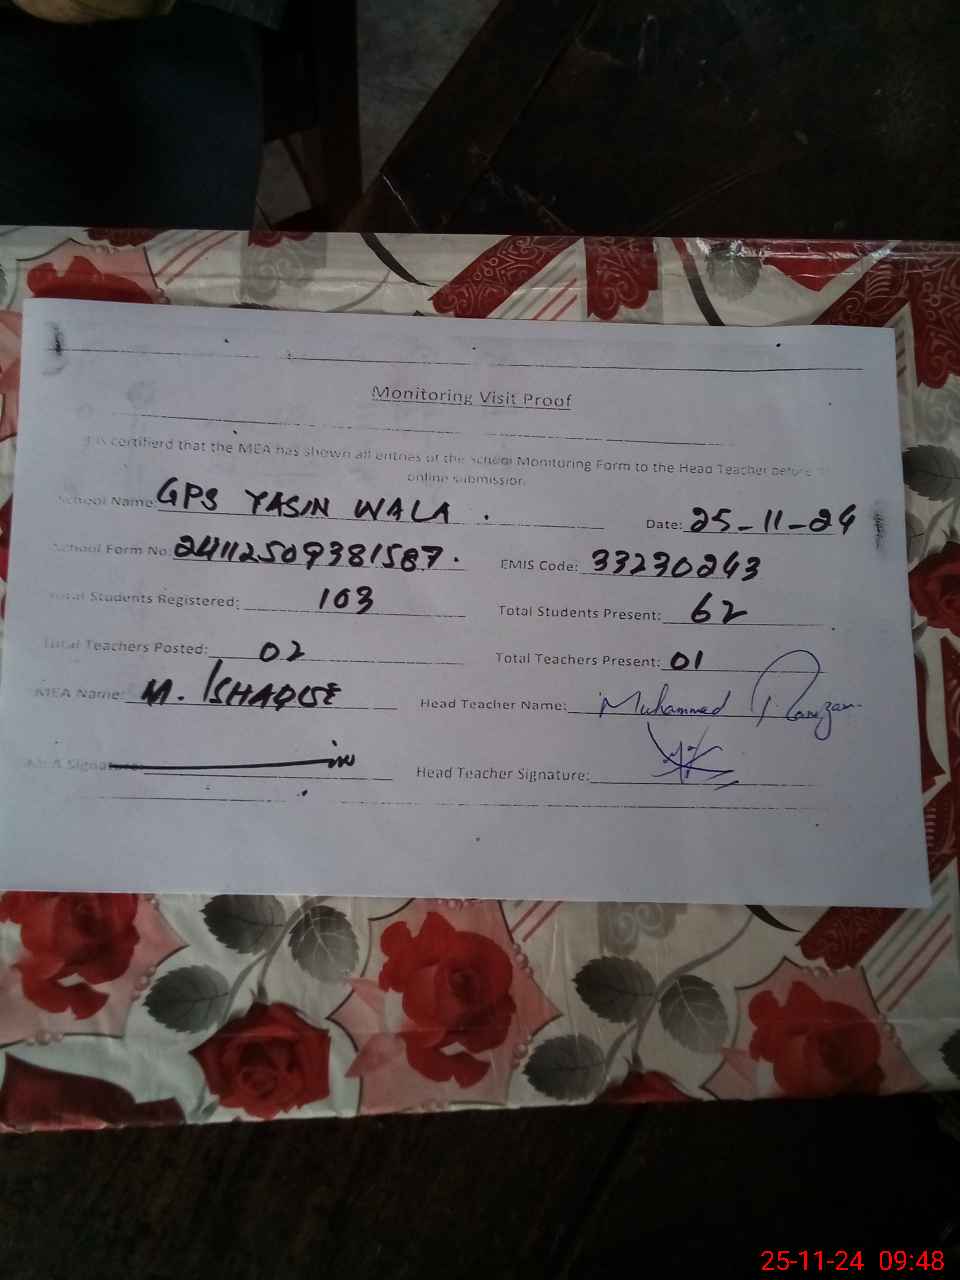 Monitoring Visit Proof
It is certifierd that the MEA has shown all entries of the School Monitoring Form to the Head Teacher before
online submission.
School Name: GPS YASIN WALA . Date: 25-11-24
School Form No: 24112509381587. EMIS Code: 33230243
Total Students Registered: 103 Total Students Present: 62
Total Teachers Posted: 02 Total Teachers Present: 01
MEA Name: M. ISHAQ Head Teacher Name: Muhammed Ramzan
MEA Signature: Head Teacher Signature:
25-11-24 09:48